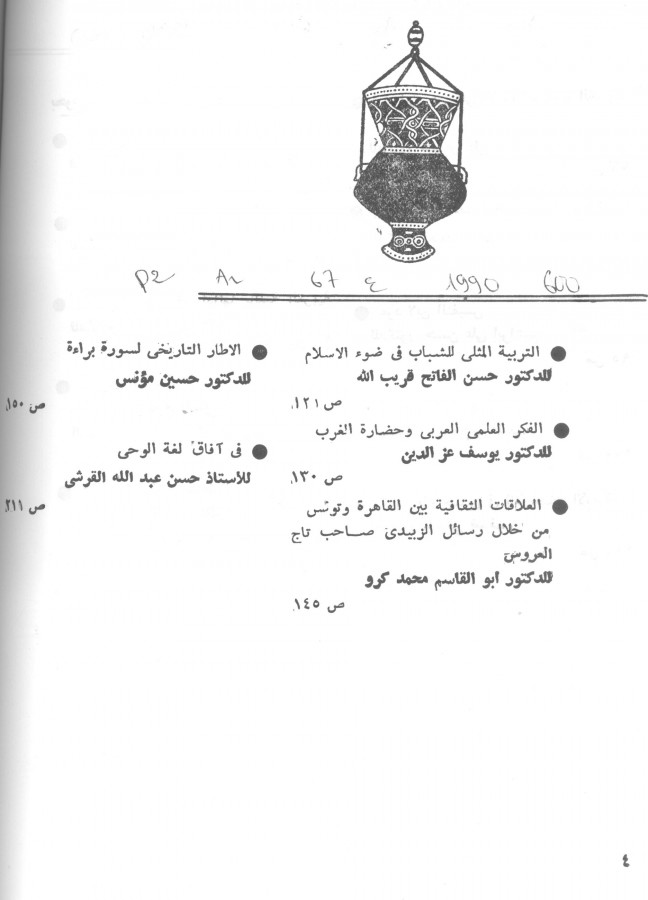 P2 Ar 67 ع 1990 600
● التربية المثلى للشباب فى ضوء الاسلام
للدكتور حسن الفاتح قريب الله
ص ١٢١
● الفكر العلمى العربى وحضارة الغرب
للدكتور يوسف عز الدين
ص ١٣٠
● العلاقات الثقافية بين القاهرة وتونس
من خلال رسائل الزبيدى صاحب تاج
العروس
للدكتور أبو القاسم محمد كرو
ص ١٤٥
● الاطار التاريخى لسورة براءة
للدكتور حسين مؤنس
ص ١٥٠
● فى آفاق لغة الوحى
للأستاذ حسن عبد الله القرشى
ص ٢١١
٤